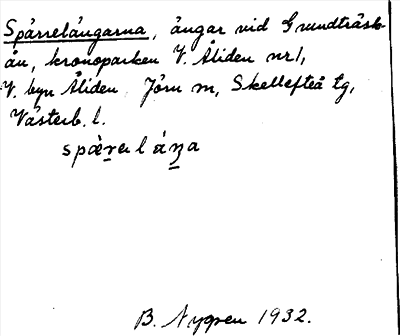 Spärrelängarna, ängar vid Grundträsk-
ån, kronoparken V. Åliden nr 1,
V. byn Åliden. Jörn sn, Skellefteå tg,
Västerb. l.
B. Nygren 1932.